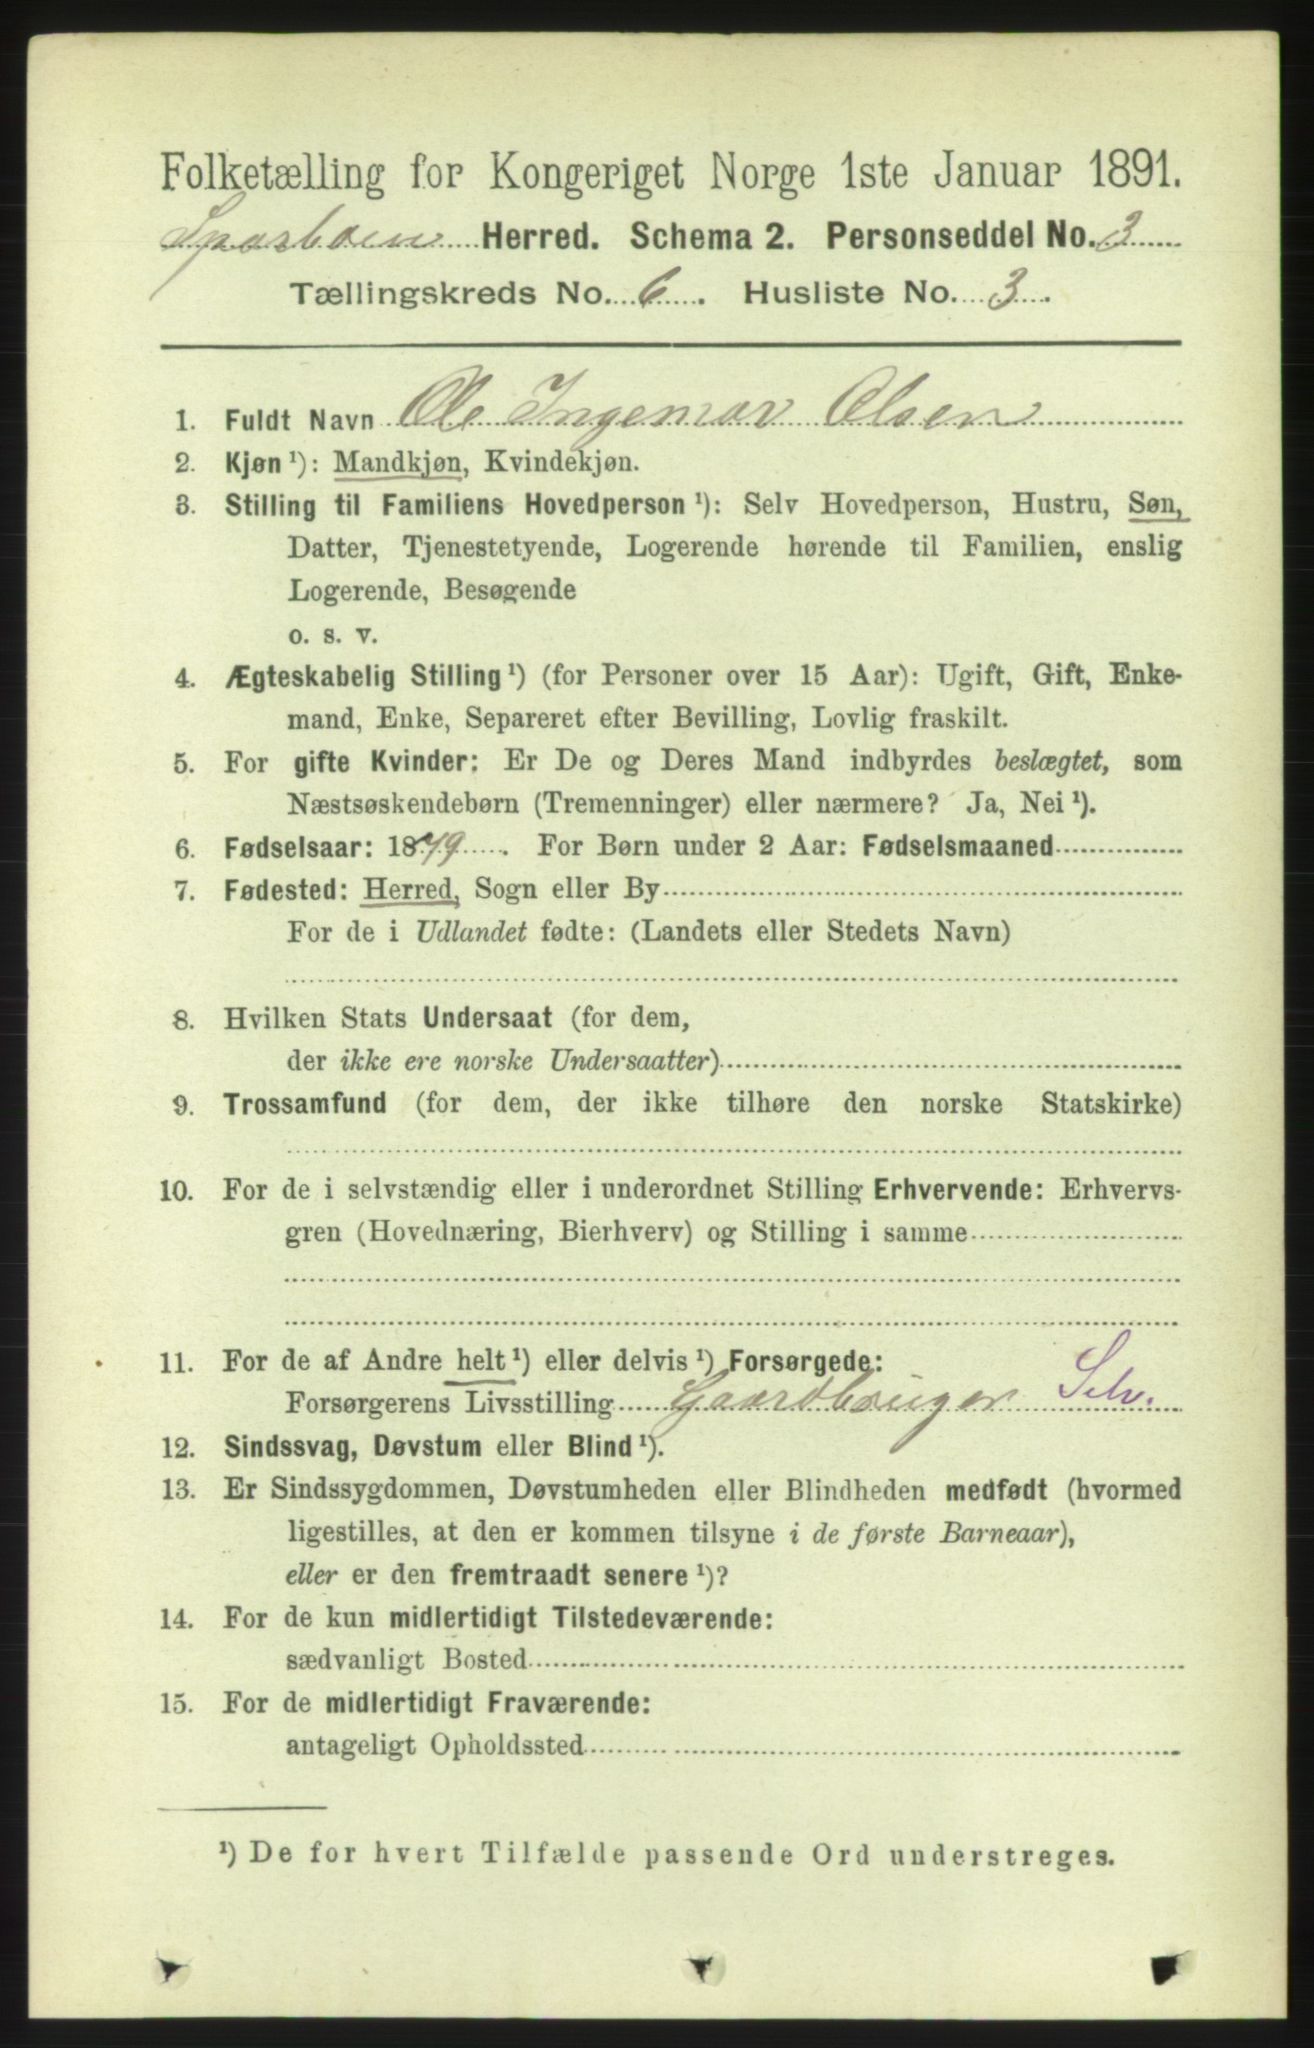 Folketælling for Kongeriget Norge 1ste Januar 1891.
Sparboen Herred. Schema 2. Personseddel No. 3
Tællingskreds No. 6. Husliste No. 3.
1. Fuldt Navn Ole Ingemar Olsen
2. Kjøn ¹): Mandkjøn, Kvindekjøn.
3. Stilling til Familiens Hovedperson ¹): Selv Hovedperson, Hustru, Søn,
Datter, Tjenestetyende, Logerende hørende til Familien, enslig
Logerende, Besøgende
o. s. v.
4. Ægteskabelig Stilling ¹) (for Personer over 15 Aar): Ugift, Gift, Enke-
mand, Enke, Separeret efter Bevilling, Lovlig fraskilt.
5. For gifte Kvinder: Er De og Deres Mand indbyrdes beslægtet, som
Næstsøskendebørn (Tremenninger) eller nærmere? Ja, Nei ¹).
6. Fødselsaar: 1879. For Børn under 2 Aar: Fødselsmaaned
7. Fødested: Herred, Sogn eller By
For de i Udlandet fødte: (Landets eller Stedets Navn)
8. Hvilken Stats Undersaat (for dem,
der ikke ere norske Undersaatter)
9. Trossamfund (for dem, der ikke tilhøre den norske Statskirke)
10. For de i selvstændig eller i underordnet Stilling Erhvervende: Erhvervs-
gren (Hovednæring, Bierhverv) og Stilling i samme
11. For de af Andre helt ¹) eller delvis ¹) Forsørgede:
Forsørgerens Livsstilling Gaardbruger Selv.
12. Sindssvag, Døvstum eller Blind ¹).
13. Er Sindssygdommen, Døvstumheden eller Blindheden medfødt (hvormed
ligestilles, at den er kommen tilsyne i de første Barneaar),
eller er den fremtraadt senere ¹)?
14. For de kun midlertidigt Tilstedeværende:
sædvanligt Bosted
15. For de midlertidigt Fraværende:
antageligt Opholdssted
¹) De for hvert Tilfælde passende Ord understreges.